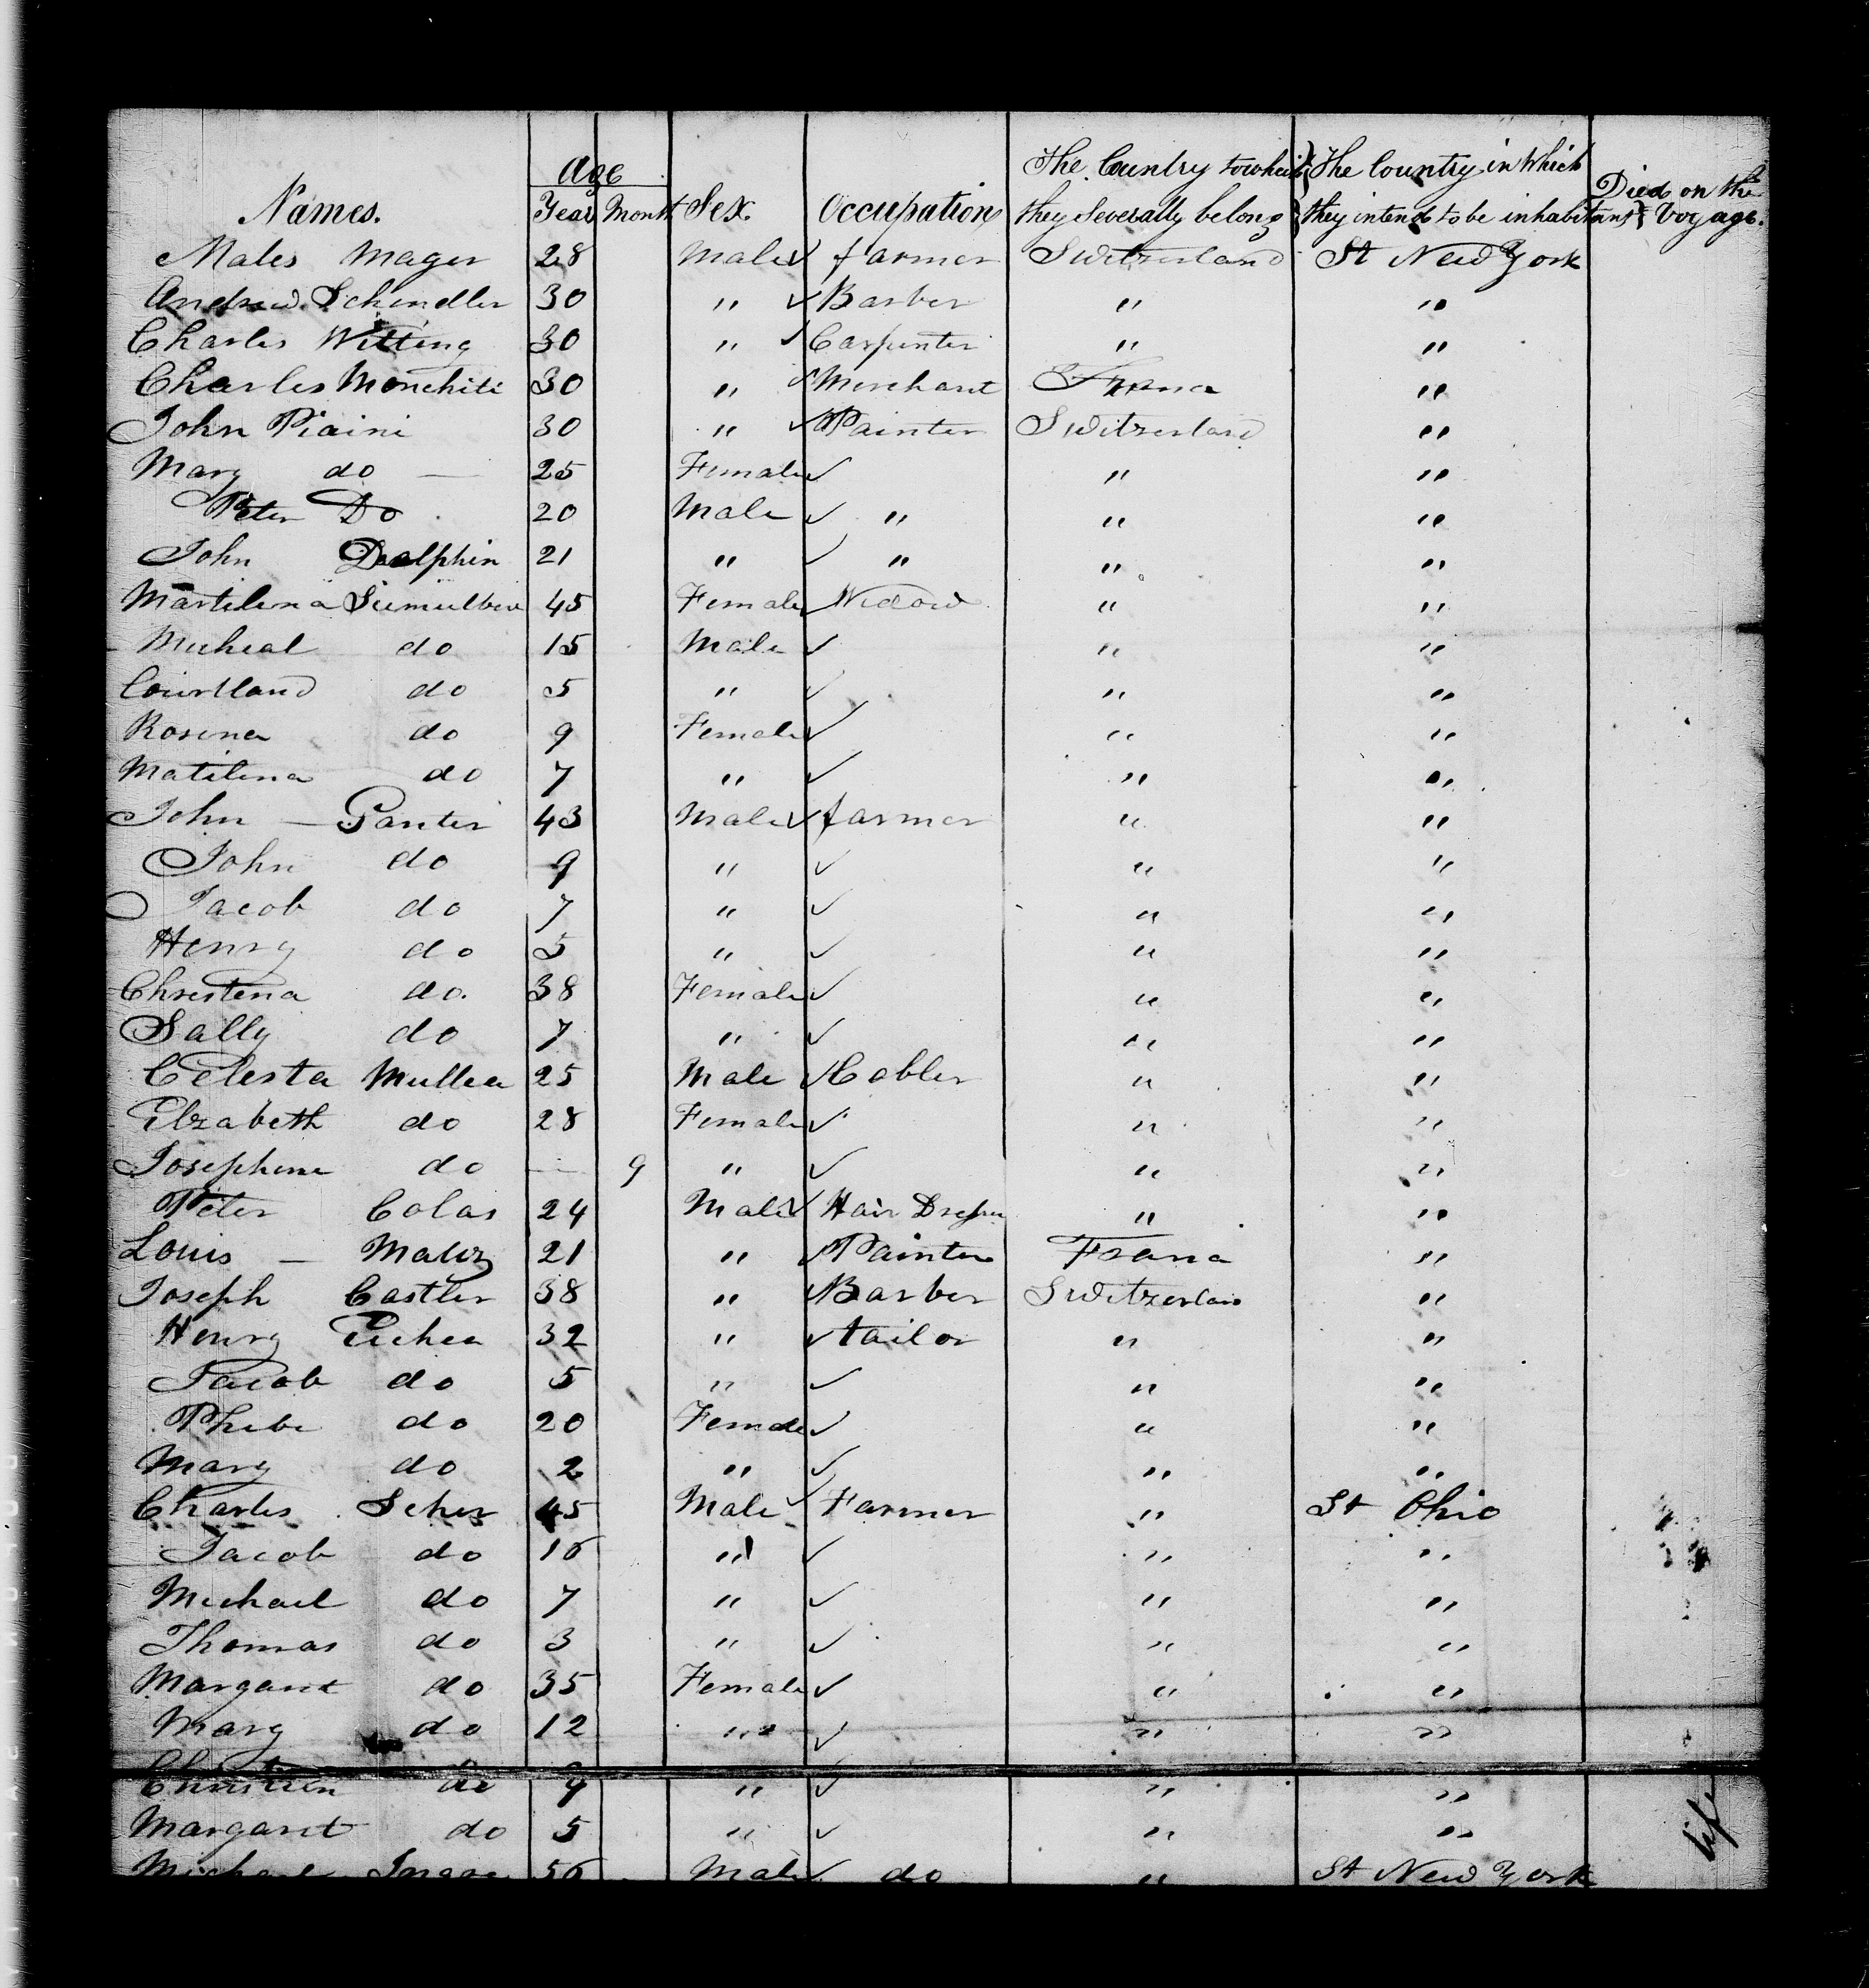 Names. Age Year Month Sex. Occupation The Country to which they Severally belong The Country in Which they intend to be inhabitants Died on the Voyage.
Males Mager 28 Male farmer Switzerland St New York
Andrew Schindler 30 " Barber " "
Charles Witting 30 " Carpenter " "
Charles Monchiti 30 " Merchant France "
John Piaini 30 " Painter Switzerland "
Mary do — 25 Female " "
Peter Do 20 Male " " "
John Dealphin 21 " " " "
Martilena 45 Female Widow " "
Micheal do 15 Male " "
Courtland do 5 " " "
Rosena do 9 Female " "
Matilena do 7 " " "
John — Ganter 43 Male farmer " "
John do 9 " " "
Jacob do 7 " " "
Henry do 5 " " "
Christena do. 38 Female " "
Sally do 7 " " "
Celesta Muller 25 Male Cobler " "
Elzabeth do 28 Female " "
Josephine do — 9 " " "
Peter Colas 24 Male Hair Dresser " "
Louis — 21 " Painter France "
Joseph Castler 38 " Barber Switzerland "
Henry Eicher 32 " tailor " "
Jacob do 5 " " "
Phebe do 20 Female " "
Mary do 2 " " "
Charles Scher 45 Male Farmer " St Ohio
Jacob do 16 " " "
Michael do 7 " " "
Thomas do 3 " " "
Margaret do 35 Female " "
Mary do 12 " " "
Christien do 9 " " "
Margaret do 5 " " "
Michael 56 Male do " St New York